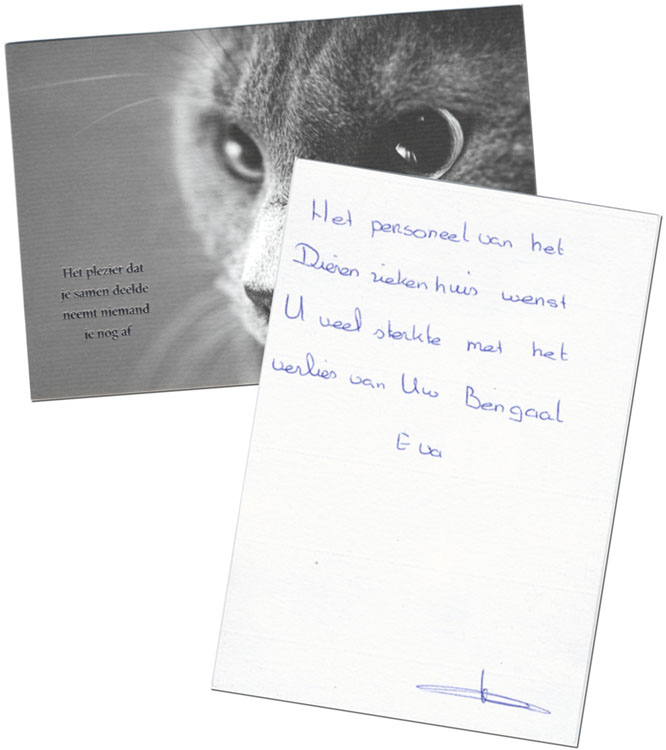 Het plezier dat
je samen deelde
neemt niemand
je nog af
Het personeel van het
Dieren ziekenhuis wenst
U veel sterkte met het
verlies van Uw Bengaal
Eva